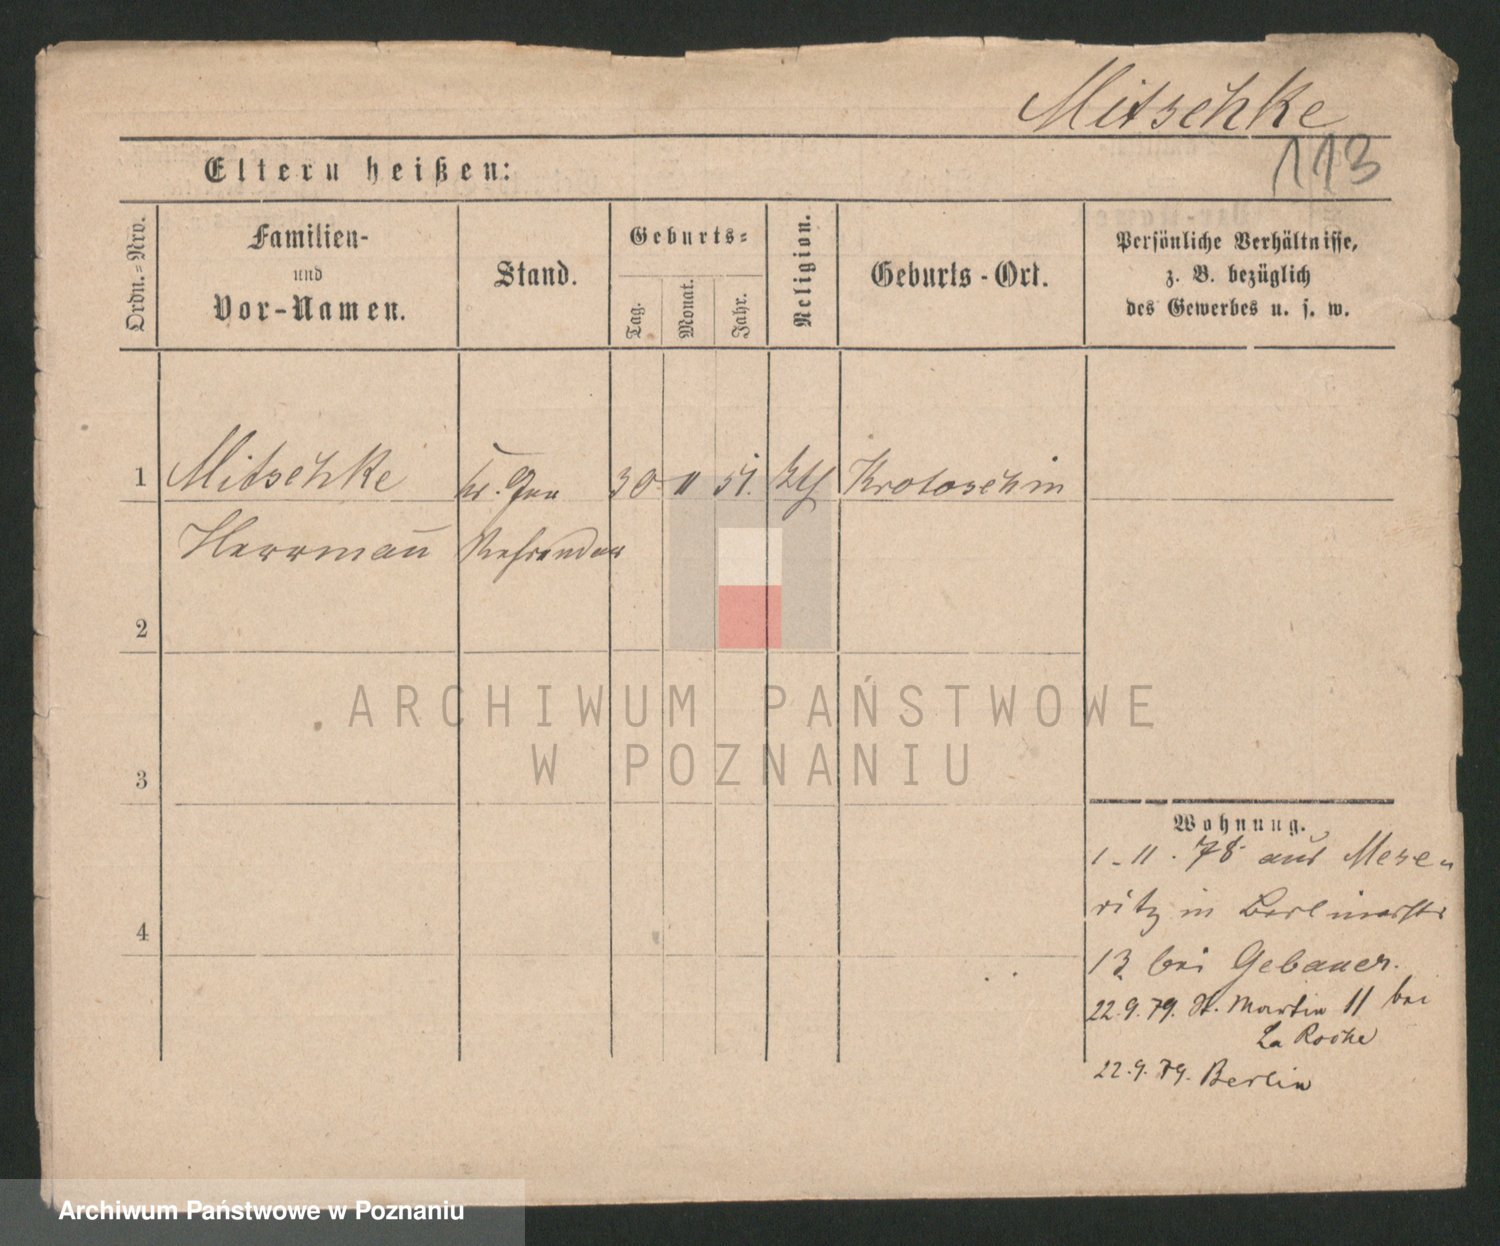 Mitschke
113
Eltern heißen:
Ordn.=Nro.
Familien-
und
Vor-Namen.
Stand.
Geburts=
Tag.
Monat.
Jahr.
Religion.
Geburts-Ort.
Persönliche Verhältnisse,
z. B. bezüglich
des Gewerbes u. s. w.
1 Mitschke 30 11 51. Krotoschin
Herrmañ
2
3
4
Wohnung.
1-11.78 aus Mese-
ritz in Berlinerstr
13 bei Gebauer.
22.9.79. St. Martin 11 bei
La Roche
22.9.79. Berlin
ARCHIWUM PAŃSTWOWE
W POZNANIU
Archiwum Państwowe w Poznaniu